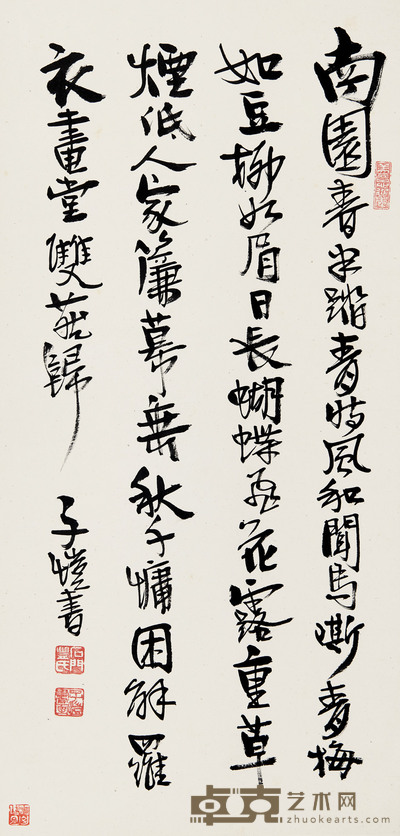 南園春半踏青時風和聞馬嘶青梅
如豆柳如眉日長蝴蝶飛花露重草
煙低人家簾幕垂秋千慵困解羅
衣畫堂雙燕歸
子愷書
石門豐氏
卓克艺术网
zhuokearts.com